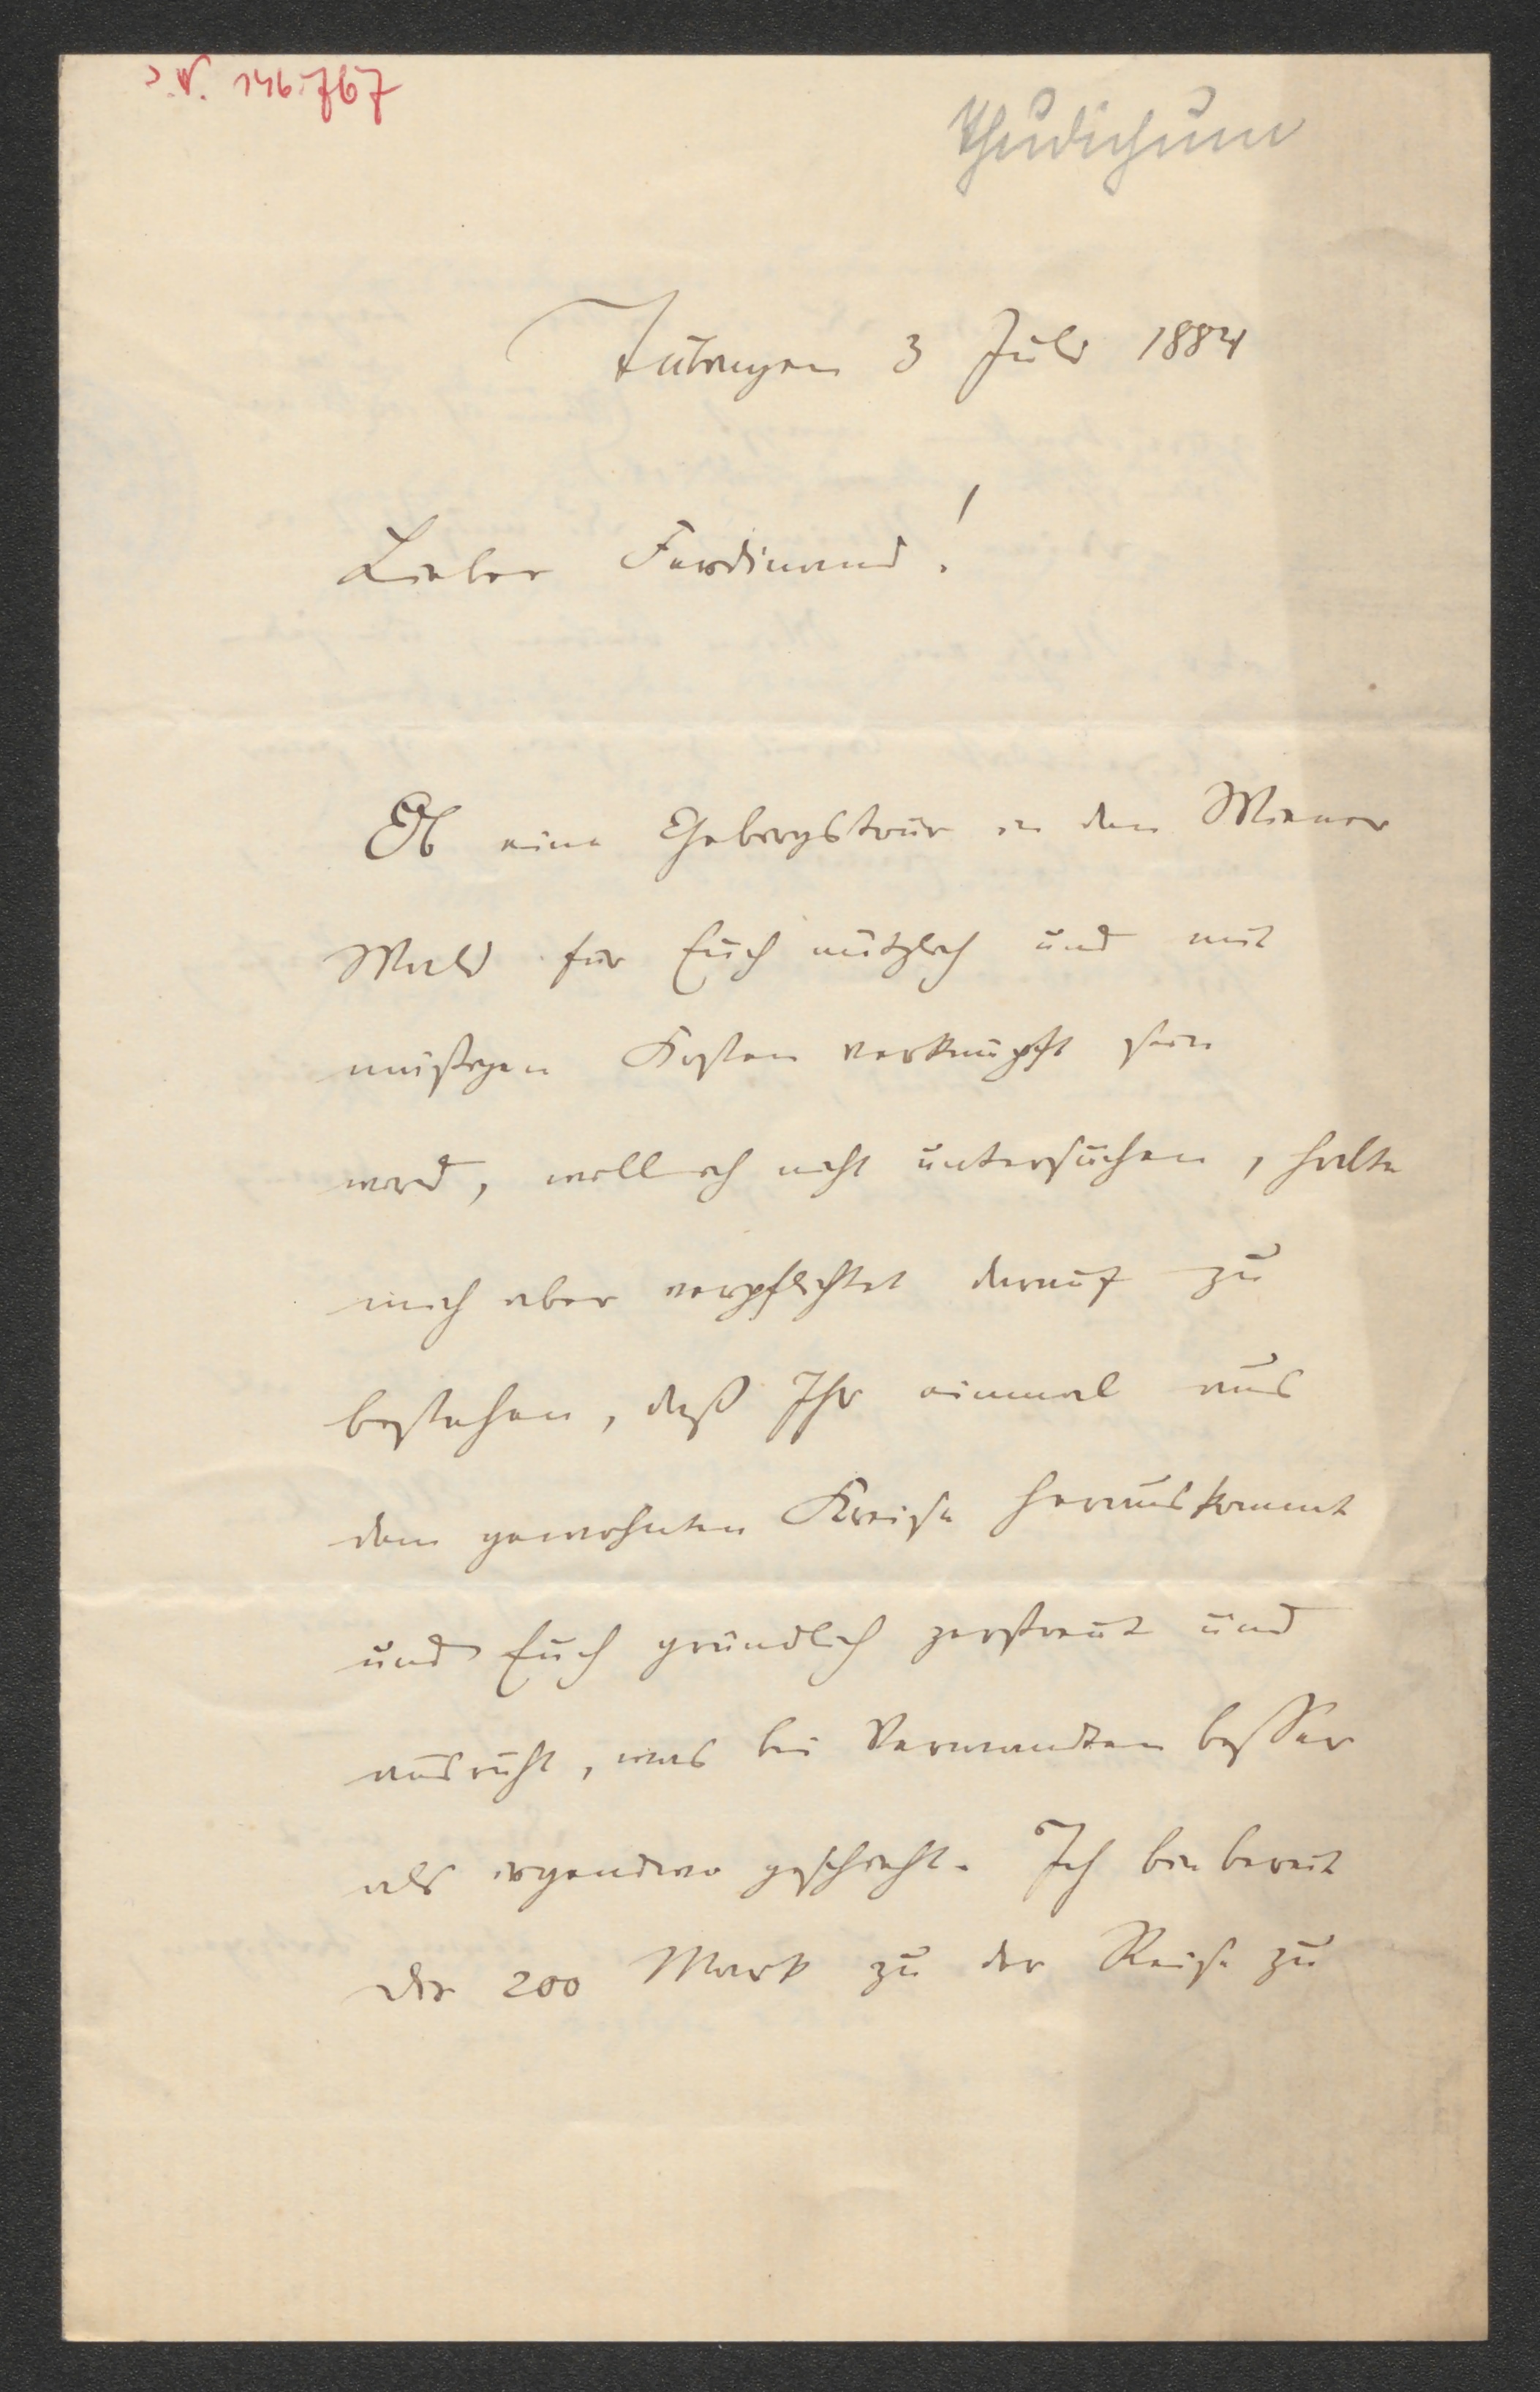 I.N. 146.767
Thudichum
Tübingen 3 Juli 1884
Lieber Ferdinand!
Ob eine Gebirgstour in den Wiener
Wald für Euch nützlich und mit
mäßigen Kosten verknüpft sein
wird, will ich nicht untersuchen, halte
mich aber verpflichtet darauf zu
bestehen, daß Ihr einmal aus
dem gewohnten Kreise herauskommt
und Euch gründlich zerstreut und
ausruht, was bei Verwandten besser
als irgendwo geschieht. Ich bin bereit
Dir 200 Mark zu der Reise zu